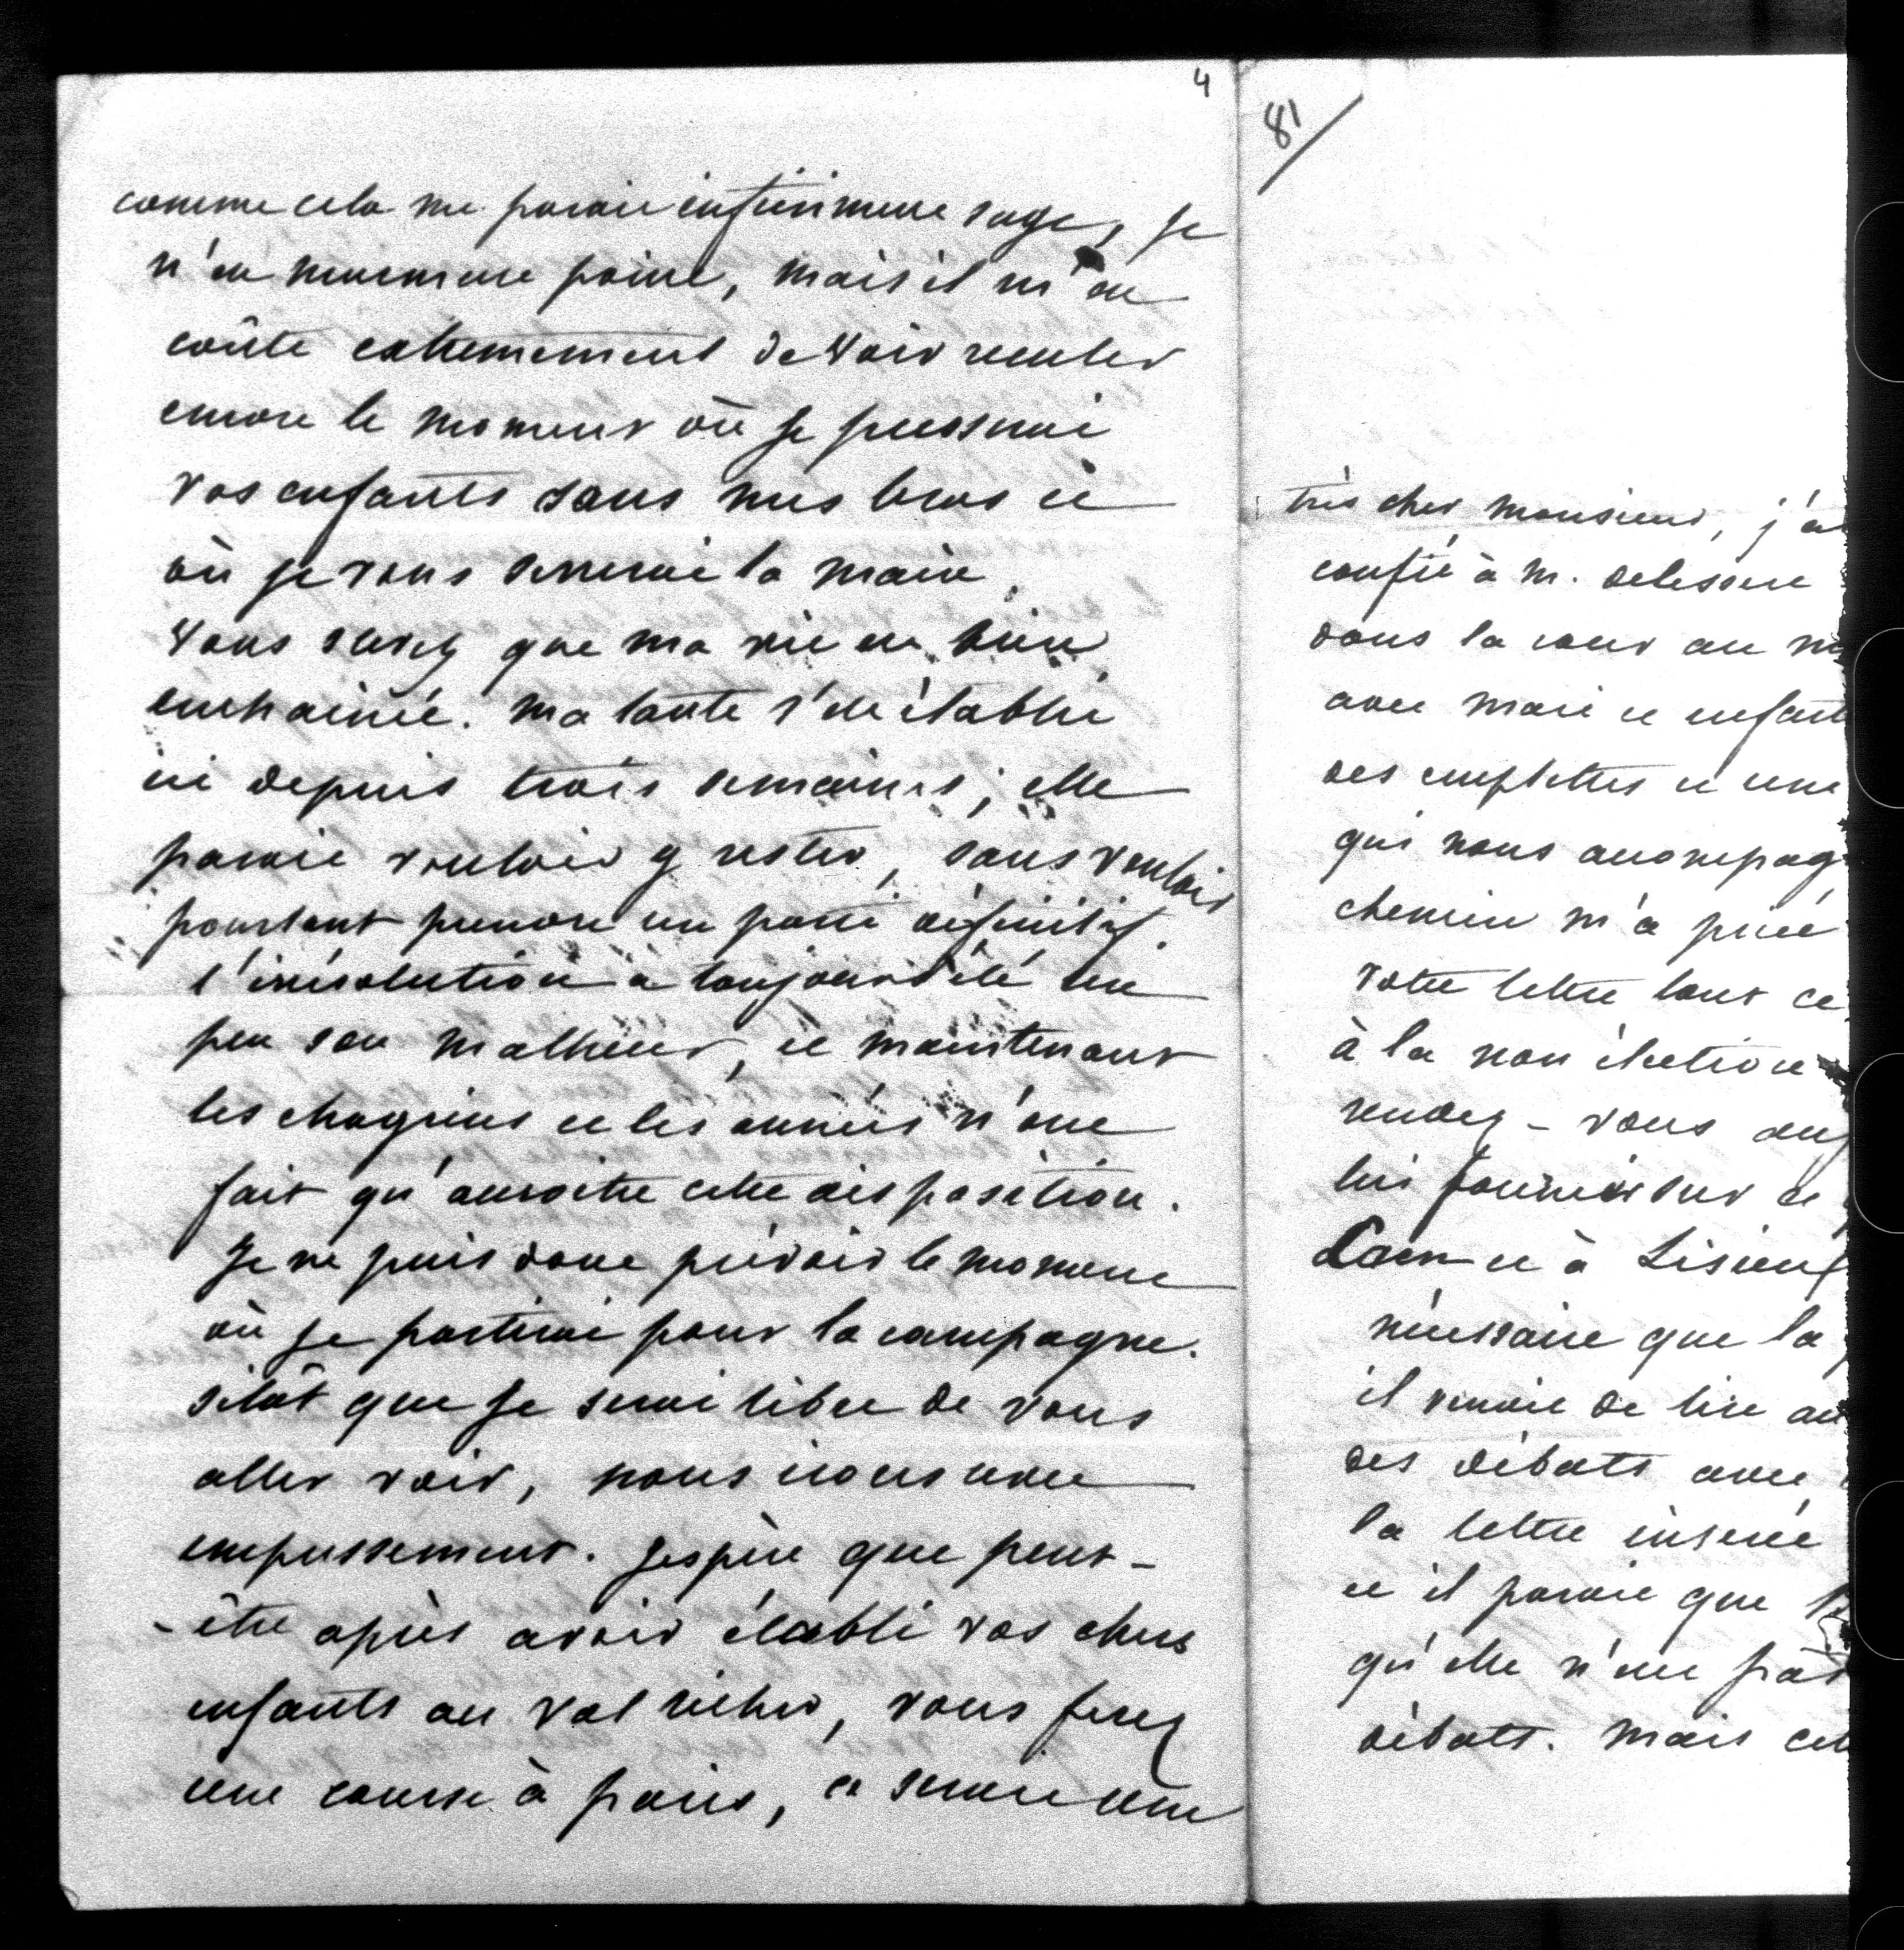 4
comme cela me parait infiniment sage, je
n'en murmure point, mais il m'en
coûte extremement de voir reculer
encore le moment où je presserai
vos enfants dans mes bras et
où je vous serrerai la main.
Vous savez que ma vie est bien
enchainée. ma tante s'est établie
ici depuis trois semaines ; elle
parait vouloir y rester, sans vouloir
pourtant prendre un parti définitif.
l'irrésolution a toujours été un
peu son malheur, et maintenant
les chagrins et les années n'ont
fait qu'accroitre cette disposition.
Je ne puis donc prévoir le moment
où je partirai pour la campagne.
sitôt que je serai libre de vous
aller voir, nous irons avec
empressement. J'espère que peut-
-être après avoir établi vos chers
enfants au val richer, vous ferez
une course à paris, ce serait une
81
très cher monsieur, j'a
confié à M. delessert
dans la cour au m
avec mari et enfant
des emplettes et une
qui nous accompag
chemin m'a prié
votre lettre tout ce
à la non élection
rendez-vous au
lui fournir sur ce
Caen et à Lisieux
nécessaire que la
il venait de lire au
des débats avec
la lettre insérée
et il parait que
qu'elle n'est pas
débats. mais cel